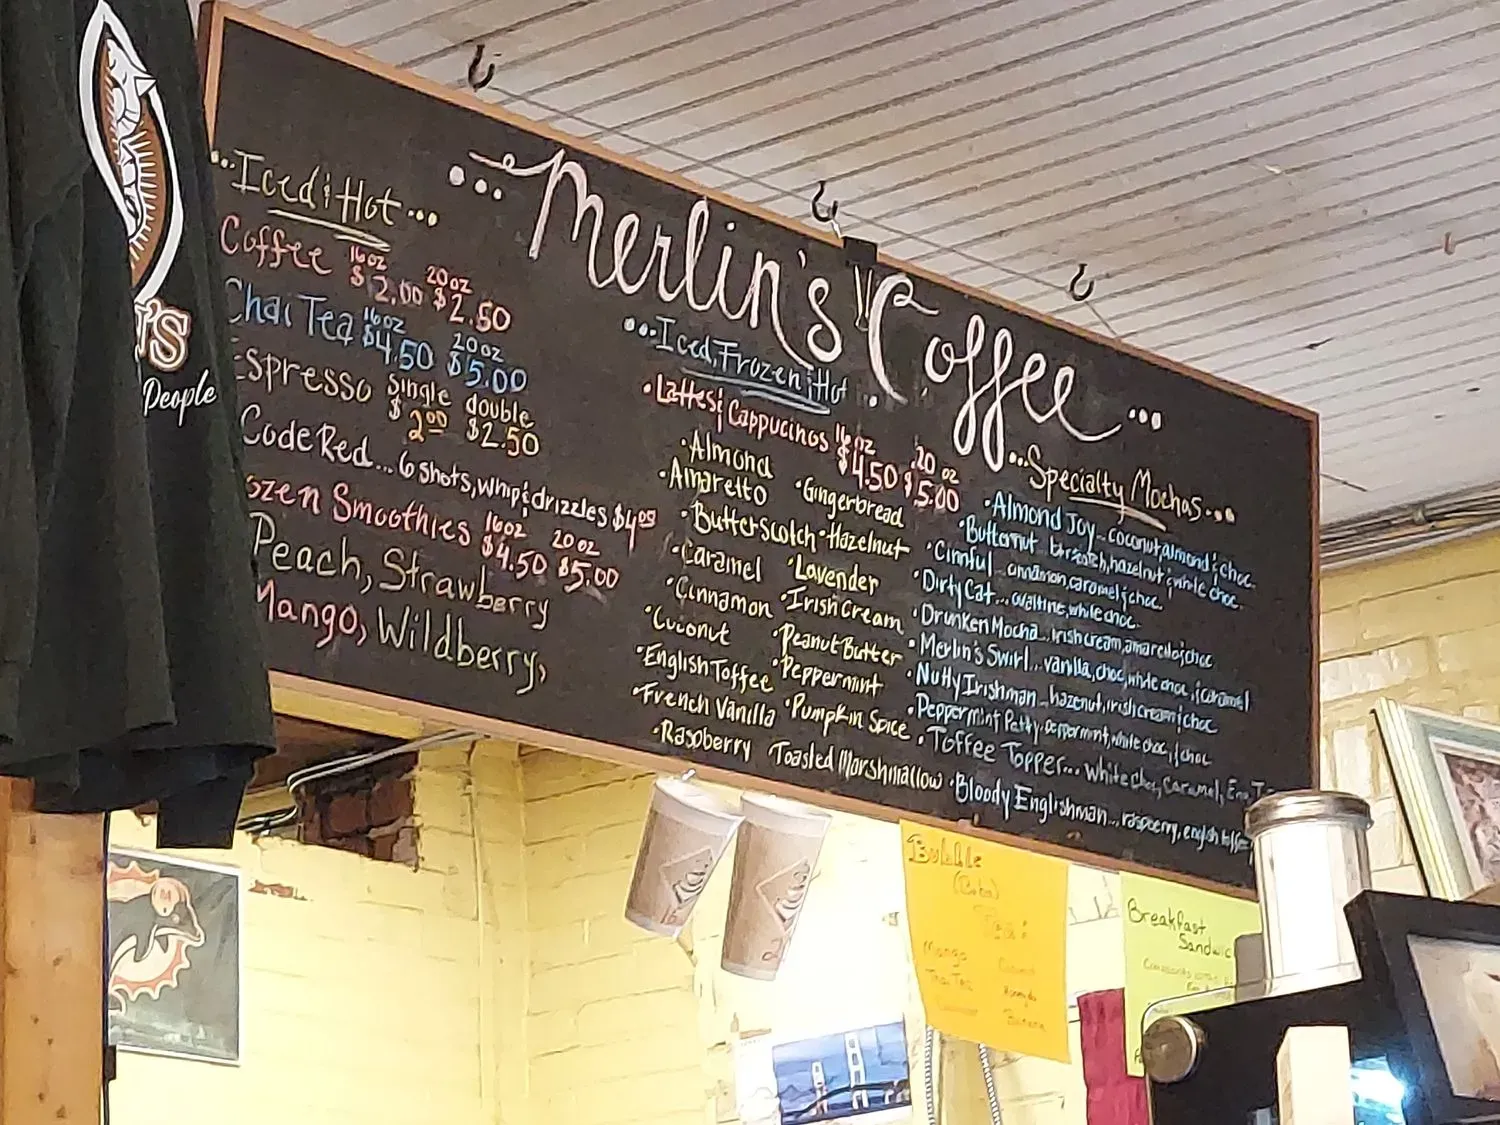 Merlin's Coffee
Iced & Hot
Coffee 16oz $2.00 20oz $2.50
Chai Tea 16oz $4.50 20oz $5.00
Espresso single $2.00 double $2.50
Code Red... 6 shots, whip & drizzles $4.00
ozen Smoothies 16oz $4.50 20oz $5.00
Peach, Strawberry
Mango, Wildberry,
Iced, Frozen & Hot
Lattes & Cappucinos 16oz $4.50 20oz $5.00
Almond
Amaretto
Butterscotch
Caramel
Cinnamon
Coconut
English Toffee
French Vanilla
Raspberry
Gingerbread
Hazelnut
Lavender
Irish Cream
Peanut Butter
Peppermint
Pumpkin Spice
Toasted Marshmallow
Specialty Mochas
Almond Joy... coconut, almond & choc.
Butternut btrscotch, hazelnut & white choc.
Cinnful... cinnamon, caramel & choc.
Dirty Cat... ovaltine, white choc.
Drunken Mocha... irish cream, amaretto & choc
Merlin's Swirl... vanilla, choc, white choc, & caramel
Nutty Irishman... hazenut, irish cream & choc
Peppermint Patty, peppermint, white choc, & choc
Toffee Topper... white choc, caramel,
Bloody Englishman... raspberry, english toffee
'S
People
Bubble
(Boba)
Mango
Thai Tea
Honeydo
Banana
Breakfast
Sandwic
16